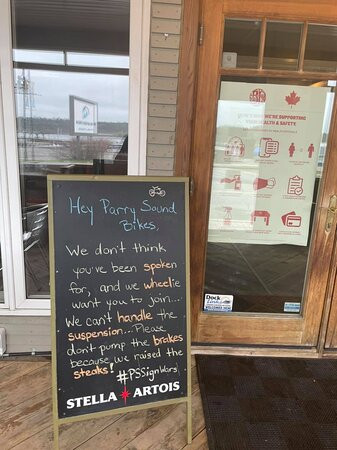 Hey Parry Sound
Bikes,
We don't think
you've been spoken
for, and we wheelie
want you to join...
We can't handle the
suspension...Please
don't pump the brakes
because we raised the
steaks!
#PSSignWars
STELLA ARTOIS
WE'RE SUPPORTING
HEALTH & SAFETY
Dock